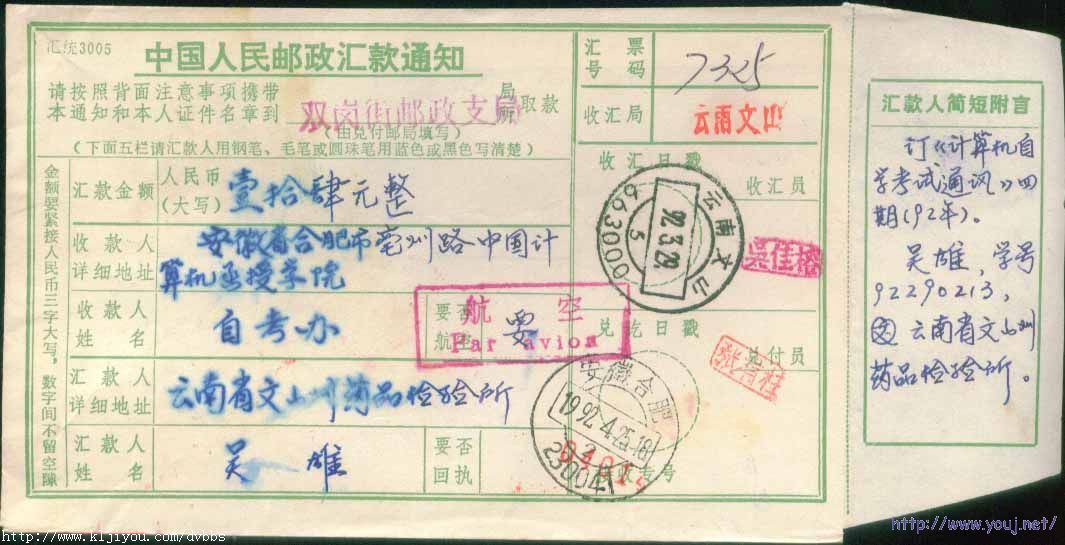 汇统3005
中国人民邮政汇款通知
请按照背面注意事项携带
本通知和本人证件名章到 双岗街邮政支局 局所取款
(由兑付邮局填写)
(下面五栏请汇款人用钢笔、毛笔或圆珠笔用蓝色或黑色写清楚)
金额要紧接人民币三字大写,数字间不留空隙
汇款金额 人民币(大写) 壹拾肆元整
收款人详细地址 安徽省合肥市亳州路中国计
算机函授学院
收款人姓名 自考办
要否航空 要
航空
Par avion
汇款人详细地址 云南省文山州药品检验所
汇款人姓名 吴雄
要否回执
汇票号码 7325
收汇局 云南文山
收汇日戳 收汇员
云南文山
92.3.29.
5
663000
兑讫日戳 兑付员
安徽合肥
1992.4.25.18
2
230041
汇款人简短附言
订《计算机自
学考试通讯》四
期(92年)。
吴雄,学号
92290213,
云南省文山州
药品检验所。
http://www.kljiyou.com/dvbbs
http://www.youj.net/